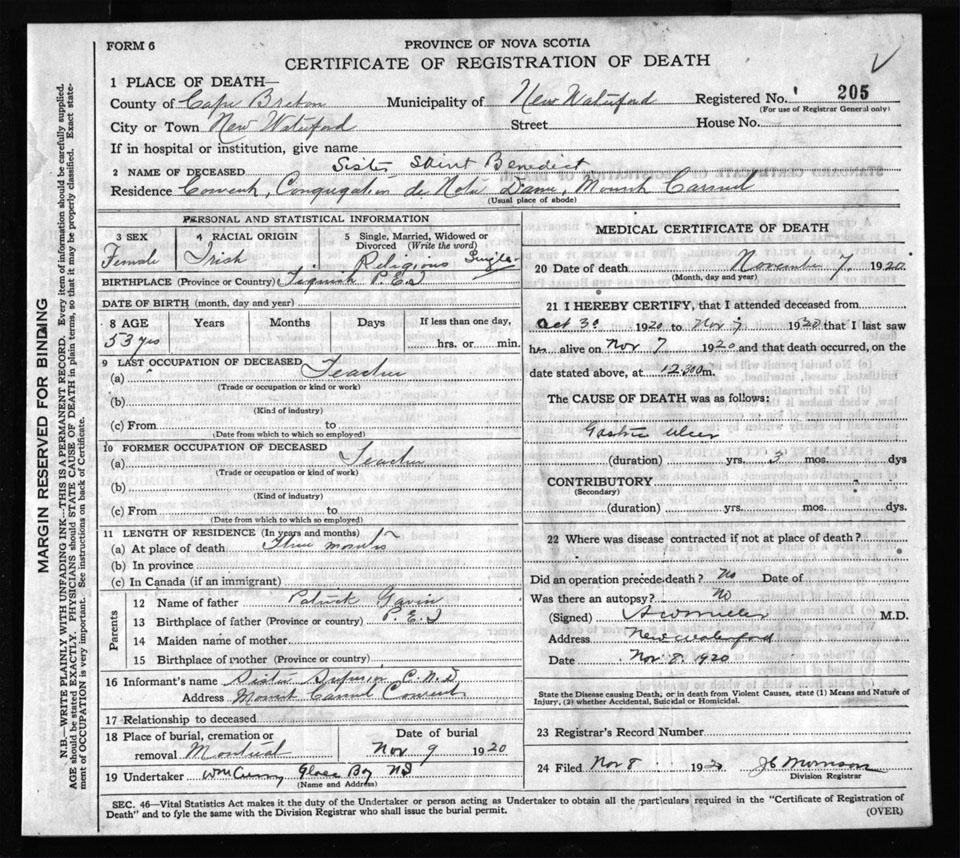 FORM 6
PROVINCE OF NOVA SCOTIA
CERTIFICATE OF REGISTRATION OF DEATH
MARGIN RESERVED FOR BINDING
N.B.—WRITE PLAINLY WITH UNFADING INK—THIS IS A PERMANENT RECORD. Every item of information should be carefully supplied.
AGE should be stated EXACTLY. PHYSICIANS should STATE CAUSE OF DEATH in plain terms, so that it may be properly classified. Exact state-
ment of OCCUPATION is very important. See instructions on back of Certificate.
1 PLACE OF DEATH—
County of Cape Breton Municipality of New Waterford Registered No. 205
(For use of Registrar General only)
City or Town New Waterford Street House No.
If in hospital or institution, give name
2 NAME OF DECEASED Sister Saint Benedict
Residence Convent, Congregation de Notre Dame, Mount Carmel
(Usual place of abode)
PERSONAL AND STATISTICAL INFORMATION
3 SEX 4 RACIAL ORIGIN 5 Single, Married, Widowed or
Divorced (Write the word)
Female Irish Religious Single
BIRTHPLACE (Province or Country) Tignish P.E.I
DATE OF BIRTH (month, day and year)
8 AGE Years Months Days If less than one day,
53 yrs hrs. or min.
9 LAST OCCUPATION OF DECEASED
(a) Teacher
(Trade or occupation or kind or work)
(b)
(Kind of industry)
(c) From to
(Date from which to which so employed)
10 FORMER OCCUPATION OF DECEASED
(a) Teacher
(Trade or occupation or kind of work)
(b)
(Kind of industry)
(c) From to
(Date from which to which so employed)
11 LENGTH OF RESIDENCE (In years and months)
(a) At place of death Three months
(b) In province
(c) In Canada (if an immigrant)
Parents
12 Name of father Patrick Gavin
13 Birthplace of father (Province or country) P.E.I
14 Maiden name of mother
15 Birthplace of mother (Province or country)
16 Informant's name Sister Superior C.N.D.
Address Mount Carmel Convent
17 Relationship to deceased
18 Place of burial, cremation or Date of burial
removal Montreal Nov 9 1920
19 Undertaker Wm Curry Glace Bay NS
(Name and Address)
MEDICAL CERTIFICATE OF DEATH
20 Date of death November 7, 1920
(Month, day and year)
21 I HEREBY CERTIFY, that I attended deceased from
Oct 30 1920 to Nov 7 1920 that I last saw
her alive on Nov 7 1920 and that death occurred, on the
date stated above, at 12.30 m.
The CAUSE OF DEATH was as follows:
Gastric Ulcer
(duration) yrs. 3 mos. dys
CONTRIBUTORY
(Secondary)
(duration) yrs. mos. dys.
22 Where was disease contracted if not at place of death?
Did an operation precede death? No Date of
Was there an autopsy? No
(Signed) M.D.
Address New Waterford
Date Nov 8. 1920
State the Disease causing Death, or in death from Violent Causes, state (1) Means and Nature of
Injury, (2) whether Accidental, Suicidal or Homicidal.
23 Registrar's Record Number
24 Filed Nov 8 1920 Morrison
Division Registrar
SEC. 46—Vital Statistics Act makes it the duty of the Undertaker or person acting as Undertaker to obtain all the particulars required in the "Certificate of Registration of
Death" and to fyle the same with the Division Registrar who shall issue the burial permit. (OVER)